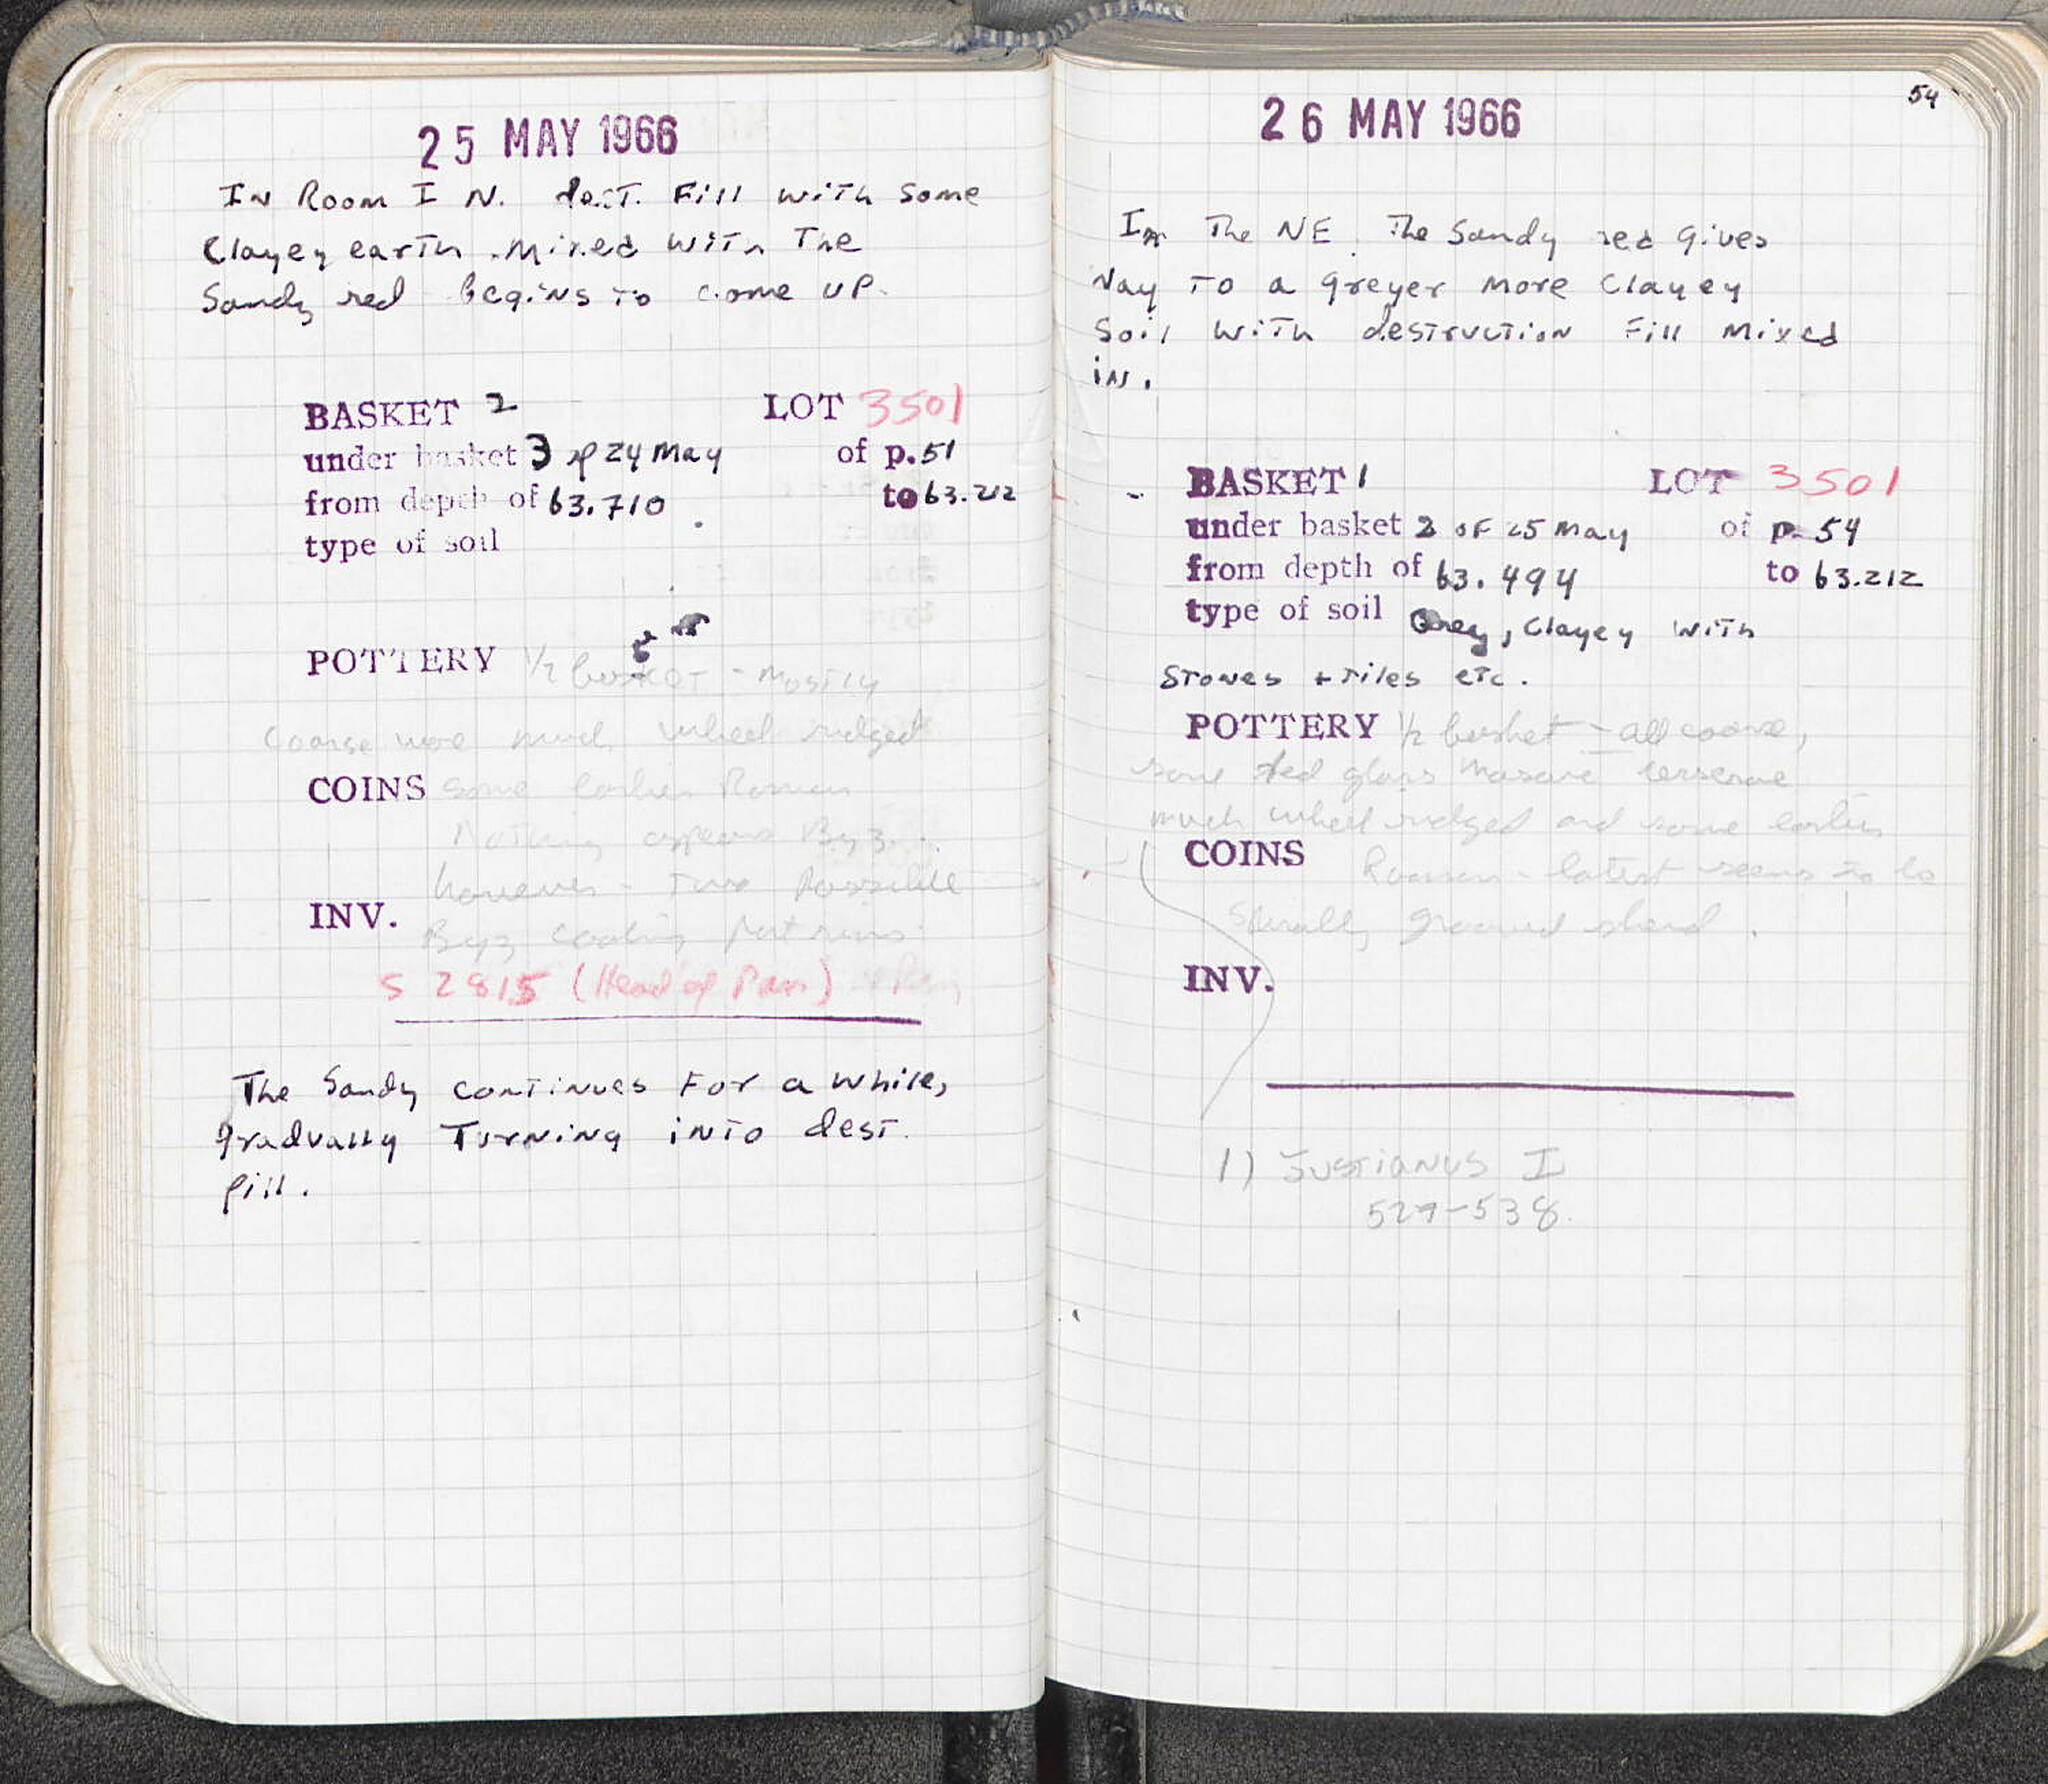 25 MAY 1966
In Room I N. dest. Fill with some
Clayey earth mixed with the
Sandy red begins to come up.
BASKET 2 LOT 3501
under basket 3 of 24 May of p. 51
from depth of 63.710 to 63.212
type of soil
POTTERY 1/2 basket - mostly
coarse ware much wheel ridged
COINS some earlier Roman
Nothing appears Byz.
INV. however - two possible
Byz cooking pot rims
S 2815 (Head of Pan)
The Sandy continues for a while,
gradually Turning into dest.
fill.
54
26 MAY 1966
In The NE The Sandy red gives
Way to a greyer more Clayey
Soil with destruction Fill mixed
in.
BASKET 1 LOT 3501
under basket 2 of 25 May of p. 54
from depth of 63.494 to 63.212
type of soil Grey, Clayey with
Stones + tiles etc.
POTTERY 1/2 basket - all coarse,
some glass mosaic tesserae
much wheel ridged and some earlier
COINS Roman - latest seems to be
Spirally grooved sherd.
INV.
1) Justianus I
527-538.